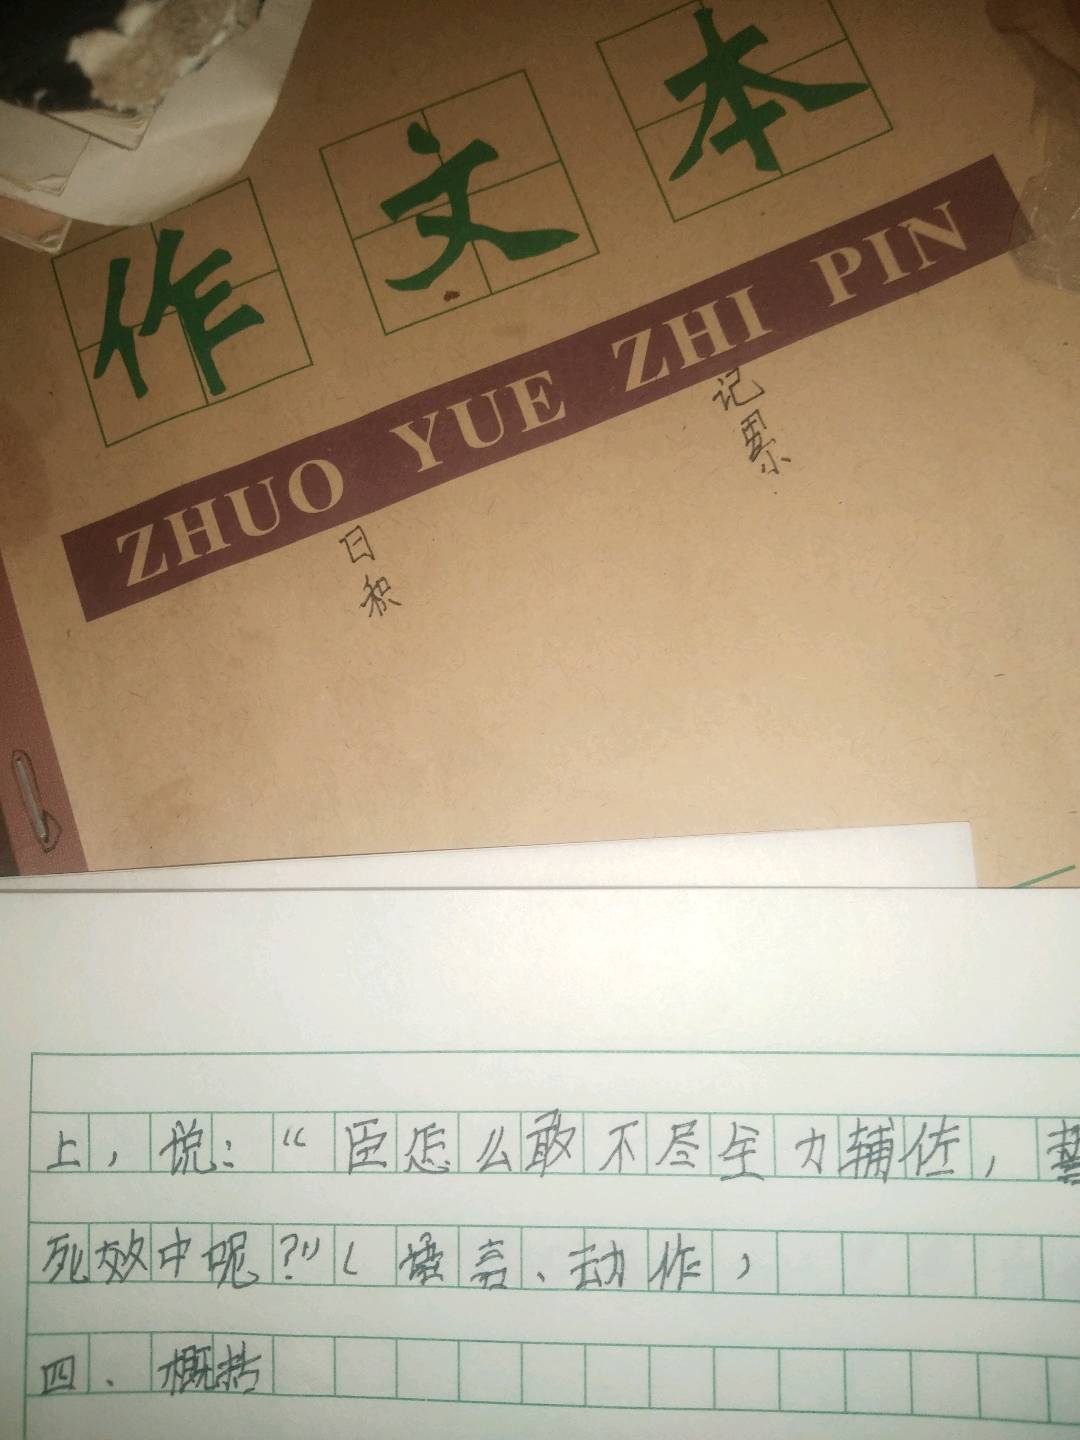 作文本
ZHUO YUE ZHI PIN
记累
日积
上，说：“臣怎么敢不尽全力辅佐，誓
死效中呢？”（语言、动作）
四．概括